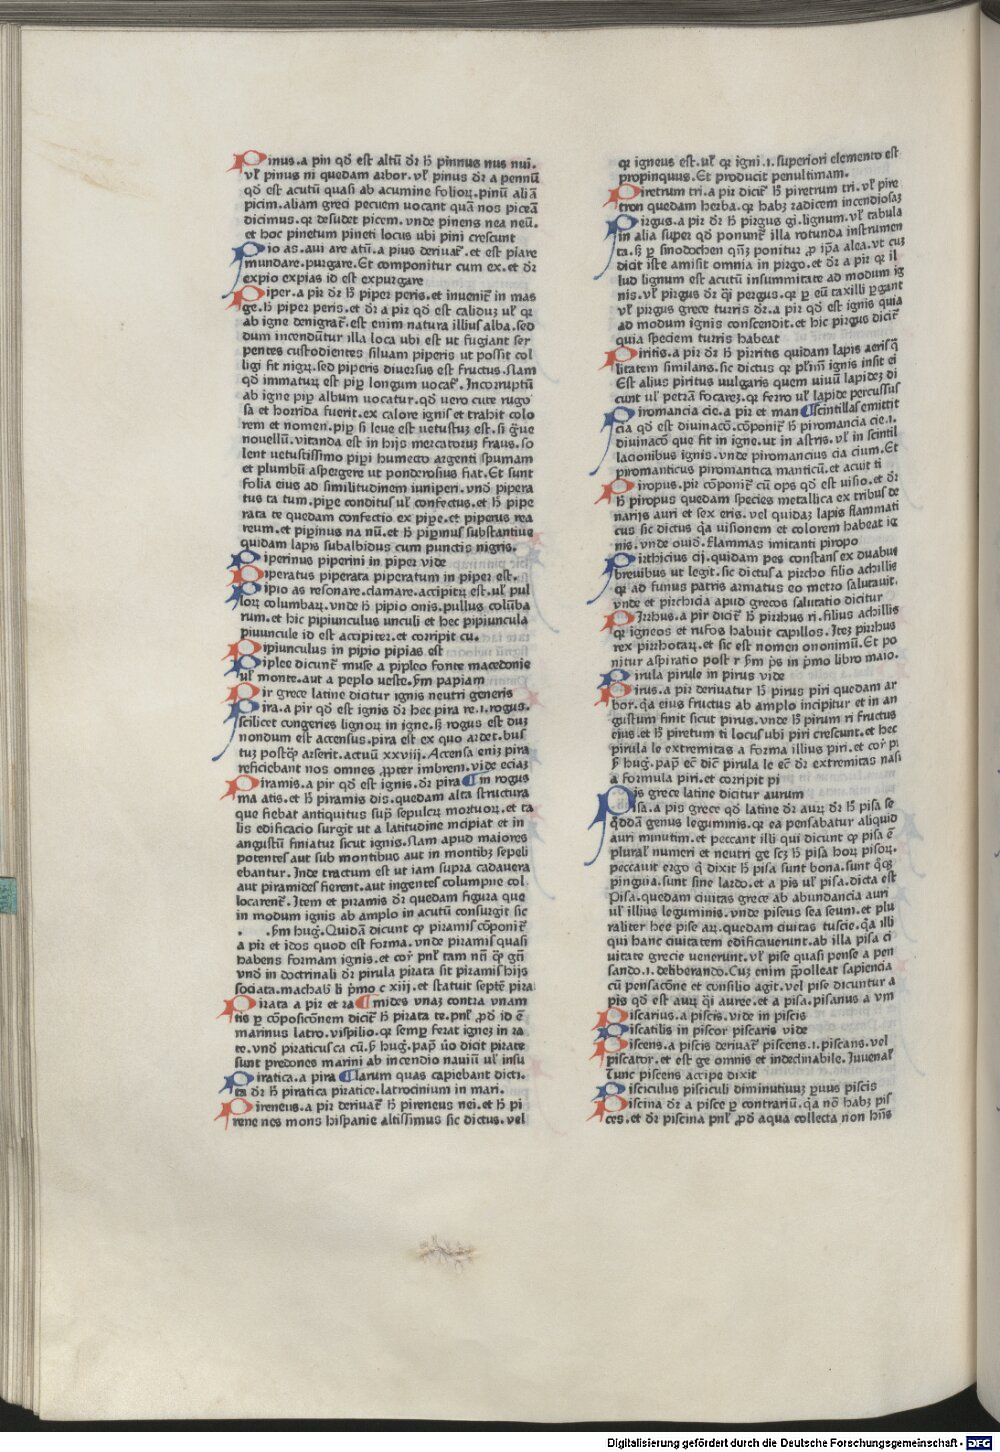 Pinus.a pin qđ est altū dr̄ h̄ pinnus nus nui.
vl̓ pinus ni quedam arbor.vl̓ pinus dr̄ a pennū
qđ est acutū quasi ab acumine folioꝝ.pinū aliā
picim.aliam greci pecuem uocant quā nos piceā
dicimus.qꝛ desudet picem.vnde pinens nea neū.
et hoc pinetum pineti locus ubi pini crescunt
Pio as.aui are atū.a pius deriuat̄.et est piare
mundare.purgare.Et componitur cum ex.et dr̄
expio expias id est expurgare
Piper.a pir dr̄ h̄ piper peris.et inuenit̄ in mas
ge.h̄ piper peris.et dr̄ a pir qđ est caliduꝫ ul̓ qꝛ
ab igne denigrat̄.est enim natura illius alba.sed
dum incendūtur illa loca ubi est ut fugiant ser
pentes custodientes siluam piperis ut possit col
ligi fit nigꝝ.sed piperis diuersus est fructus.Nam
qđ immatuꝝ est pip̲ longum uocat̄.Incorruptū
ab igne pip̲ album uocatur.qđ uero cute rugo
sa et horrida fuerit.ex calore ignis et trahit colo
rem et nomen.pip̲ si leue est uetustuꝫ est.si ḡue
nouellū.vitanda est in hijs mercatoꝝ fraus.so
lent uetustissimo pip̲i humecto argenti spumam
et plumbū aspergere ut ponderosius fiat.Et sunt
folia eius ad similitudinem iuniperi.vnđ pipera
tus ta tum.pip̲e conditus ul̓ confectus.et h̄ pipe
rata te quedam confectio ex pip̲e.et piperus rea
reum.et pip̲inus na nū.et h̄ pip̲inus substantiue
quidam lapis subalbidus cum punctis nigris.
Piperinus piperini in piper vide
Piperatus piperata piperatum in piper est.
Pipio as resonare.clamare.accipitꝝ est.ul̓ pul
loꝝ columbaꝝ.vnde h̄ pipio onis.pullus colūba
rum.et hic pipiunculus unculi et hec pipiuncula
piuuncule id est accipiter.et corripit cu.
Pipiunculus in pipio pipias est
Piplee dicunt̄ muse a pipleo fonte macedonie
ul̓ monte.aut a peplo ueste.s̄m papiam
Pir grece latine dicitur ignis neutri generis
Pira.a pir qđ est ignis dr̄ hec pira re.i.rogus.
scilicet congeries lignoꝝ in igne.s; rogus est duꝫ
nondum est accensus.pira est ex quo ardet.bus
tuꝫ postq̄ arserit.actuū xxviij.Accensa eniꝫ pira
reficiebant nos omnes ꝓpter imbrem.vide eciaꝫ
Piramis.a pir qđ est ignis.dr̄ pira ¶in rogus
ma atis.et h̄ piramis dis.quedam alta structura
que fiebat antiquitus sup̄ sepulcꝝ mortuoꝝ.et ta
lis edificacio surgit ut a latitudine incipiat et in
angustū finiatur sicut ignis.Nam apud maiores
potentes aut sub montibus aut in montibꝫ sepeli
ebantur.Inde tractum est ut iam supra cadauera
aut piramides fierent.aut ingentes columpne col
locarent̄.Item et piramis dr̄ quedam figura que
in modum ignis ab amplo in acutū consurgit sic
. .s̄m hug̓.Quidā dicunt ꝙ piramis cōponit̄
a pir et idos quod est forma.vnde piramis quasi
habens formam ignis.et cor̓ pnl̓ tam nn̄ q̄ gn̄i
vnđ in doctrinali dr̄ pirula pirata sit piramis hijs
sociata.machab̓ li p̄mo c xiij.et statuit septē pira
Pirata a pir et ra ¶mides vnaꝫ contra vnam
tis p̲ cōposicōnem dicit̄ h̄ pirata te.pnl̓ ꝓđ id ē
marinus latro.vispilio.qꝛ semp̲ ferat igneꝫ in ra
te.vnđ piraticus ca cū.s̄ hug̓.pap̄ ūo dicit pirate
sunt predones marini ab incendio nauiū ul̓ insu
Piratica.a pira ¶larum quas capiebant dicti.
ta dr̄ h̄ piratica piratice.latrocinium in mari.
Pireneus.a pir deriuat̄ h̄ pireneus nei.et h̄ pi
rene nes mons hispanie altissimus sic dictus.vel
qꝛ igneus est.ul̓ qꝛ igni.i.superiori elemento est
propinquus.Et producit penultimam.
Piretrum tri.a pir dicit̄ h̄ piretrum tri.vl̓ pire
tron quedam herba.qꝛ habꝫ radicem incendiosaꝫ
Pirgus.a pir dr̄ h̄ pirgus gi.lignum.vl̓ tabula
in alia super qđ ponunt̄ illa rotunda instrumen
ta.s; p̲ sinodochen qn̄ꝫ ponitur ꝓ ip̄a alea.vt cuꝫ
dicit iste amisit omnia in pirgo.et dr̄ a pir qꝛ il
lud lignum est acutū insummitate ad modum ig
nis.vl̓ pirgus dr̄ q̄i pergus.qꝛ p̲ eū taxilli p̲gant
vl̓ pirgus grece turris dr̄.a pir qđ est ignis quia
ad modum ignis conscendit.et hic pirgus dicit̄
quia speciem turris habeat
Piritis.a pir dr̄ h̄ pirritis quidam lapis aeris q̄
litatem similans.sic dictus qꝛ plīm̄ ignis insit ei
Est alius piritus vulgaris quem uiuū lapideꝫ di
cunt ul̓ petrā focareꝫ.qꝛ ferro ul̓ lapide percussus
Piromancia cie.a pir et man ¶scintillas emittit
cia qđ est diuinacō.cōponit̄ h̄ piromancia cie.i.
diuinacō que fit in igne.ut in astris.vl̓ in scintil
lacionibus ignis.vnde piromancius cia cium.Et
piromanticus piromantica manticū.et acuit ti
Piropus.pir cōponit̄ cū ops qđ est uisio.et dr̄
h̄ piropus quedam species metallica ex tribus de
narijs auri et sex eris.vel quidaꝫ lapis flammati
cus sic dictus q̄a uisionem et colorem habeat ig
nis.vnde ouiđ.flammas imitanti piropo
Pirthicius cij.quidam pes constans ex duabus
breuibus ut legit.sic dictus a pircho filio achillis
qꝛ ad funus patris armatus eo metro salutauit.
vnde et pirchicia apud grecos salutatio dicitur
Pirrhus.a pir dicit̄ h̄ pirrhus ri.filius achillis
qꝛ igneos et rufos habuit capillos.Iteꝫ pirrhus
rex pirrhotaꝝ.et sic est nomen ononimū.Et po
nitur aspiratio post r s̄m p̄s in p̄mo libro maio.
Pirula pirule in pirus vide
Pirus.a pir deriuatur h̄ pirus piri quedam ar
bor.q̄a eius fructus ab amplo incipitur et in an
gustum finit sicut pirus.vnde h̄ pirum ri fructus
eius.et h̄ piretum ti locus ubi piri crescunt.et hec
pirula le extremitas a forma illius piri.et cor̓ pi
s̄ hug̓.pap̄ eē dīc pirula le eē dr̄ extremitas nasi
a formula piri.et corripit pi
Pis grece latine dicitur aurum
Pisa.a pis grece qđ latine dr̄ auꝝ dr̄ h̄ pisa se
q̄ddā genus leguminis.qꝛ ea pensabatur aliquid
auri minutim.et peccant illi qui dicunt ꝙ pisa ē
plural̓ numeri et neutri ge scꝫ h̄ pisa hoꝝ pisoꝝ.
peccauit ergo q̄ dixit h̄ pisa sunt bona.sunt q̄qꝫ
pinguia.sunt sine lardo.et a pis ul̓ pisa.dicta est
Pisa.quedam ciuitas grece ab abundancia auri
ul̓ illius leguminis.vnde piseus sea seum.et plu
raliter hee pise aꝝ.quedam ciuitas tuscie.q̄a illi
qui hanc ciuitatem edificauerunt.ab illa pisa ci
uitate grecie uenerunt.vl̓ pise quasi pense a pen
sando.i.deliberando.Cuꝫ enim p̄polleat sapiencia
cū pensacōne et consilio agit.vel pise dicuntur a
pis qđ est auꝝ q̄i auree.et a pisa.pisanus a vm
Piscarius.a piscis.vide in piscis
Piscatilis in piscor piscaris vide
Piscens.a piscis deriuat̄ piscens.i.piscans.vel
piscator.et est ge omnis et indeclinabile.Juuenal̓
Tunc piscens accipe dixit
Pisciculus pisciculi diminutiuuꝫ p̲uus piscis
Piscina dr̄ a pisce p̲ contrariū.q̄a nō habꝫ pis
ces.et dr̄ piscina pnl̓ ꝓđ aqua collecta non hn̄s
Digitalisierung gefördert durch die Deutsche Forschungsgemeinschaft - DFG